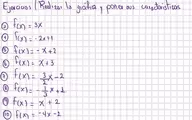 Ejercicios | Realizar la gráfica y poner sus características
① f(x) = 3x
② f(x) = -2x+1
③ f(x) = -x+2
④ f(x) = x+3
⑤ f(x) = -x-2
⑥ f(x) = -x+1
⑨ f(x) = x+2
⑩ f(x) = -4x-2